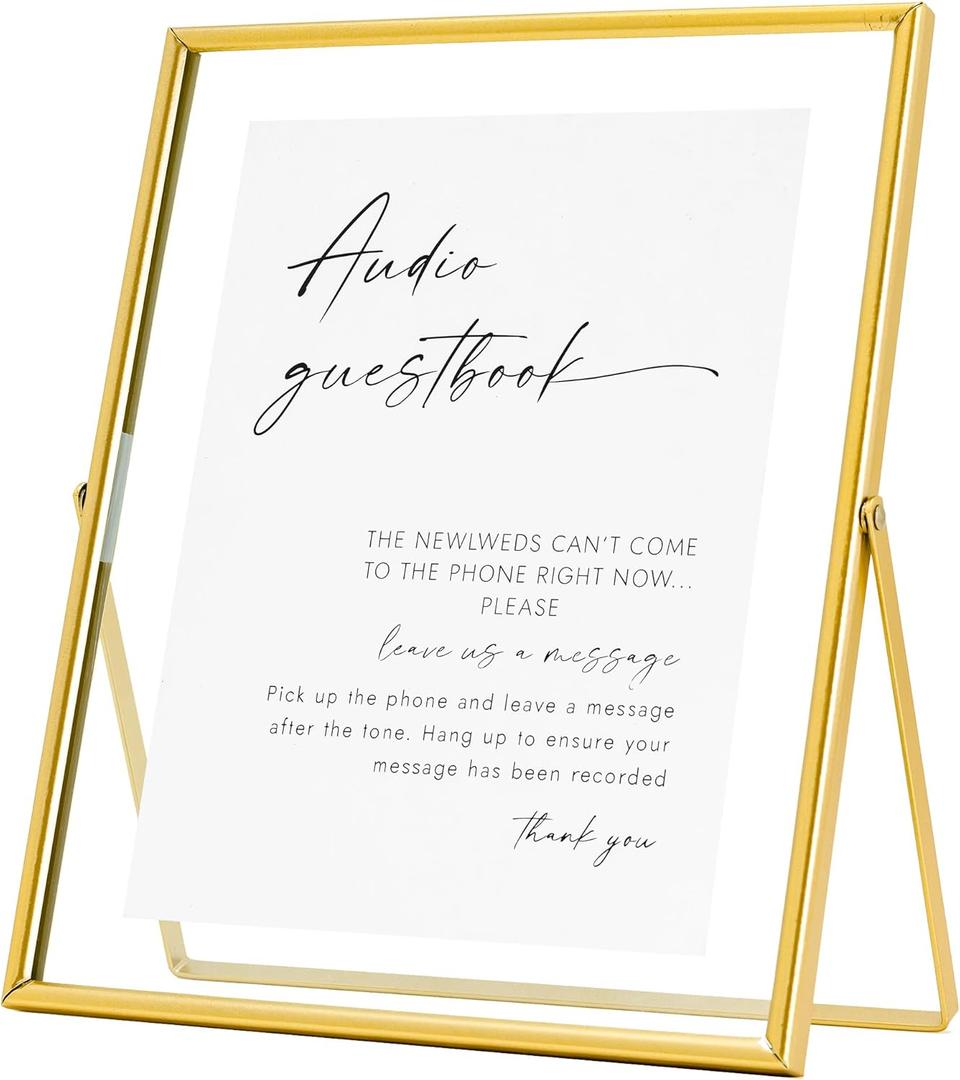 Audio
guestbook
THE NEWLWEDS CAN'T COME
TO THE PHONE RIGHT NOW...
PLEASE
leave us a message
Pick up the phone and leave a message
after the tone. Hang up to ensure your
message has been recorded
thank you